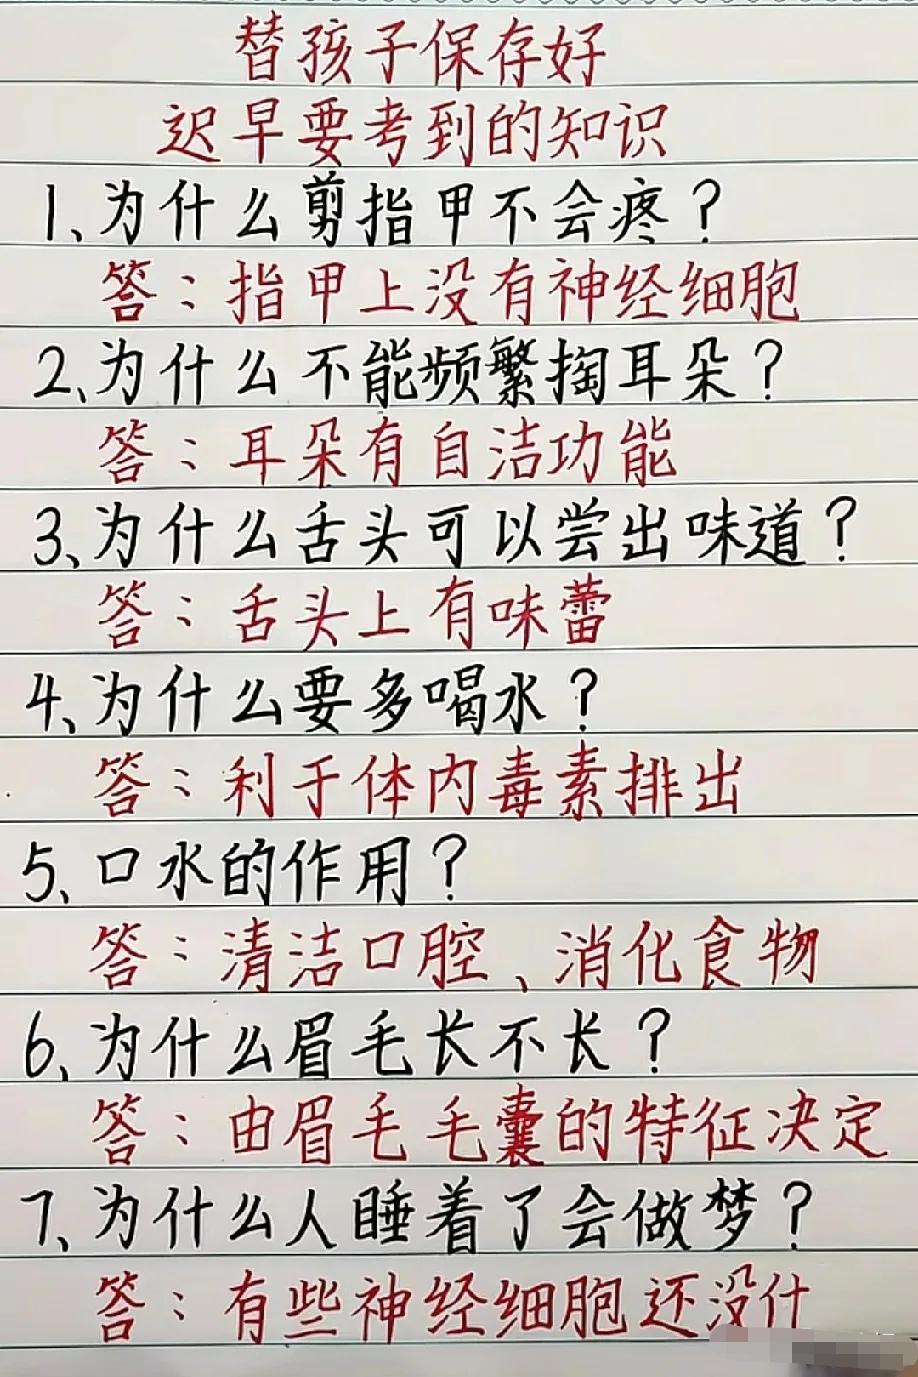 替孩子保存好
迟早要考到的知识
1、为什么剪指甲不会疼？
答：指甲上没有神经细胞
2、为什么不能频繁掏耳朵？
答：耳朵有自洁功能
3、为什么舌头可以尝出味道？
答：舌头上有味蕾
4、为什么要多喝水？
答：利于体内毒素排出
5、口水的作用？
答：清洁口腔、消化食物
6、为什么眉毛长不长？
答：由眉毛毛囊的特征决定
7、为什么人睡着了会做梦？
答：有些神经细胞还没什